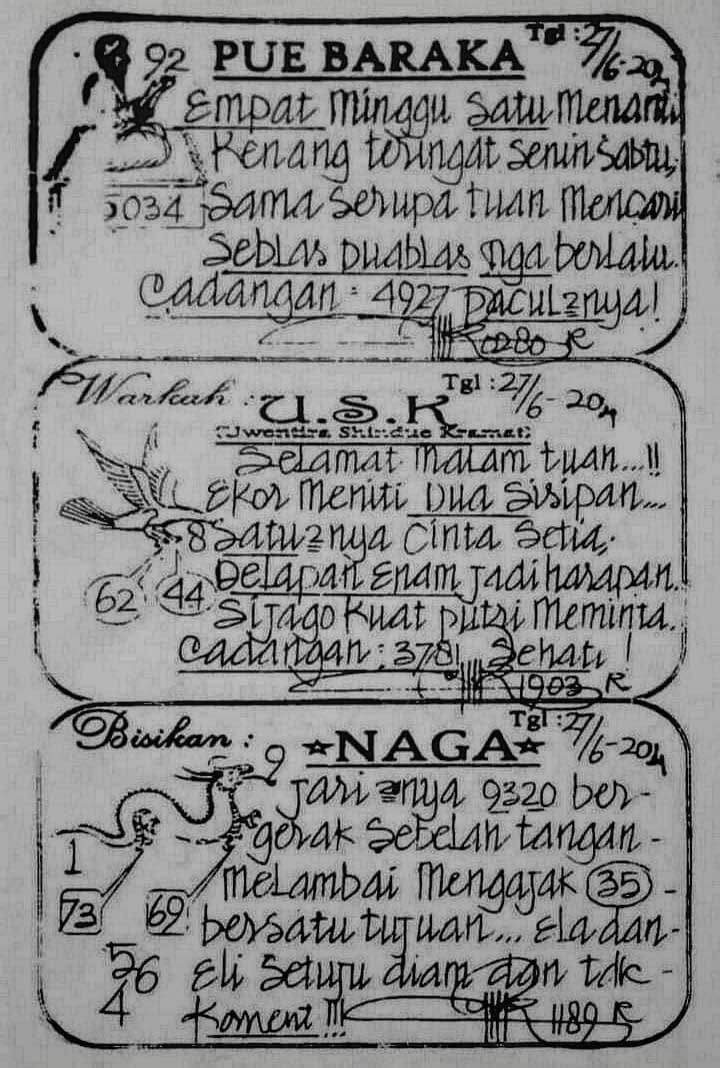 92 PUE BARAKA Tgl : 27/6-20
Empat Minggu Satu Menanti
Kenang teringat Senin Sabtu,
5034 Sama Serupa tuan Mencari
Seblas Duablas Tiga berlalu.
Cadangan : 4927 Pacul2nya!
0280 R
Warkah : U.S.K Tgl : 27/6-20
(Uwentira Shindue Kramat)
Selamat Malam tuan...!!
Ekor Meniti Dua Sisipan...
8 Satu2nya Cinta Setia,
62 44 Delapan Enam Jadi harapan.
Sijago Kuat putri Meminta.
Cadangan : 3781 Sehati !
1903 R
Bisikan : ☆NAGA☆ Tgl : 27/6-20
9 Jari2nya 9320 ber-
gerak Sebelah tangan -
1 Melambai Mengajak 35 -
73 69 bersatu tujuan... Ela dan-
56 Eli Setuju diam dan tdk -
4 Koment !!!
1189 R